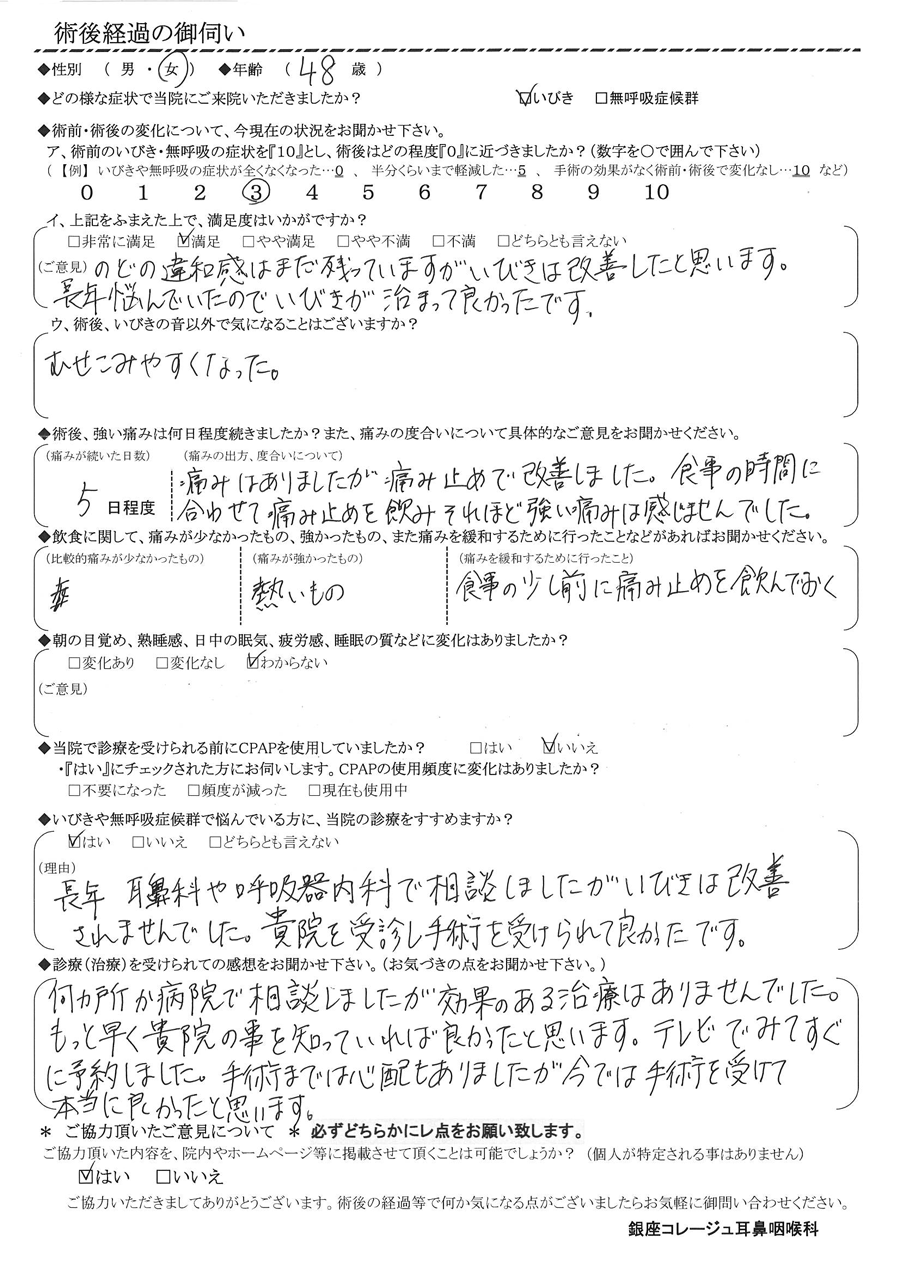 術後経過の御伺い
◆性別 （ 男 ・ 女 ） ◆年齢 （ 48 歳 ）
◆どの様な症状で当院にご来院いただきましたか？ ☑いびき □無呼吸症候群
◆術前・術後の変化について、今現在の状況をお聞かせ下さい。
ア、術前のいびき・無呼吸の症状を『10』とし、術後はどの程度『0』に近づきましたか？（数字を〇で囲んで下さい）
（ 【例】 いびきや無呼吸の症状が全くなくなった…0 、 半分くらいまで軽減した…5 、 手術の効果がなく術前・術後で変化なし…10 など）
0 1 2 3 4 5 6 7 8 9 10
イ、上記をふまえた上で、満足度はいかがですか？
□非常に満足 ☑満足 □やや満足 □やや不満 □不満 □どちらとも言えない
（ご意見） のどの違和感はまだ残っていますがいびきは改善したと思います。
長年悩んでいたのでいびきが治まって良かったです。
ウ、術後、いびきの音以外で気になることはございますか？
むせこみやすくなった。
◆術後、強い痛みは何日程度続きましたか？また、痛みの度合いについて具体的なご意見をお聞かせください。
（痛みが続いた日数） （痛みの出方、度合いについて）
5 日程度 痛みはありましたが痛み止めで改善しました。食事の時間に
合わせて痛み止めを飲みそれほど強い痛みは感じませんでした。
◆飲食に関して、痛みが少なかったもの、強かったもの、また痛みを緩和するために行ったことなどがあればお聞かせください。
（比較的痛みが少なかったもの） （痛みが強かったもの） （痛みを緩和するために行ったこと）
熱いもの 食事の少し前に痛み止めを飲んでおく
◆朝の目覚め、熟睡感、日中の眠気、疲労感、睡眠の質などに変化はありましたか？
□変化あり □変化なし ☑わからない
（ご意見）
◆当院で診療を受けられる前にCPAPを使用していましたか？ □はい ☑いいえ
・『はい』にチェックされた方にお伺いします。CPAPの使用頻度に変化はありましたか？
□不要になった □頻度が減った □現在も使用中
◆いびきや無呼吸症候群で悩んでいる方に、当院の診療をすすめますか？
☑はい □いいえ □どちらとも言えない
（理由）
長年 耳鼻科や呼吸器内科で相談しましたがいびきは改善
されませんでした。貴院を受診し手術を受けられて良かったです。
◆診療（治療）を受けられての感想をお聞かせ下さい。（お気づきの点をお聞かせ下さい。）
何カ所か病院で相談しましたが効果のある治療はありませんでした。
もっと早く貴院の事を知っていれば良かったと思います。テレビでみてすぐ
に予約しました。手術までは心配もありましたが今では手術を受けて
本当に良かったと思います。
＊ ご協力頂いたご意見について ＊ 必ずどちらかにレ点をお願い致します。
ご協力頂いた内容を、院内やホームページ等に掲載させて頂くことは可能でしょうか？ （個人が特定される事はありません）
☑はい □いいえ
ご協力いただきましてありがとうございます。術後の経過等で何か気になる点がございましたらお気軽に御問い合わせください。
銀座コレージュ耳鼻咽喉科